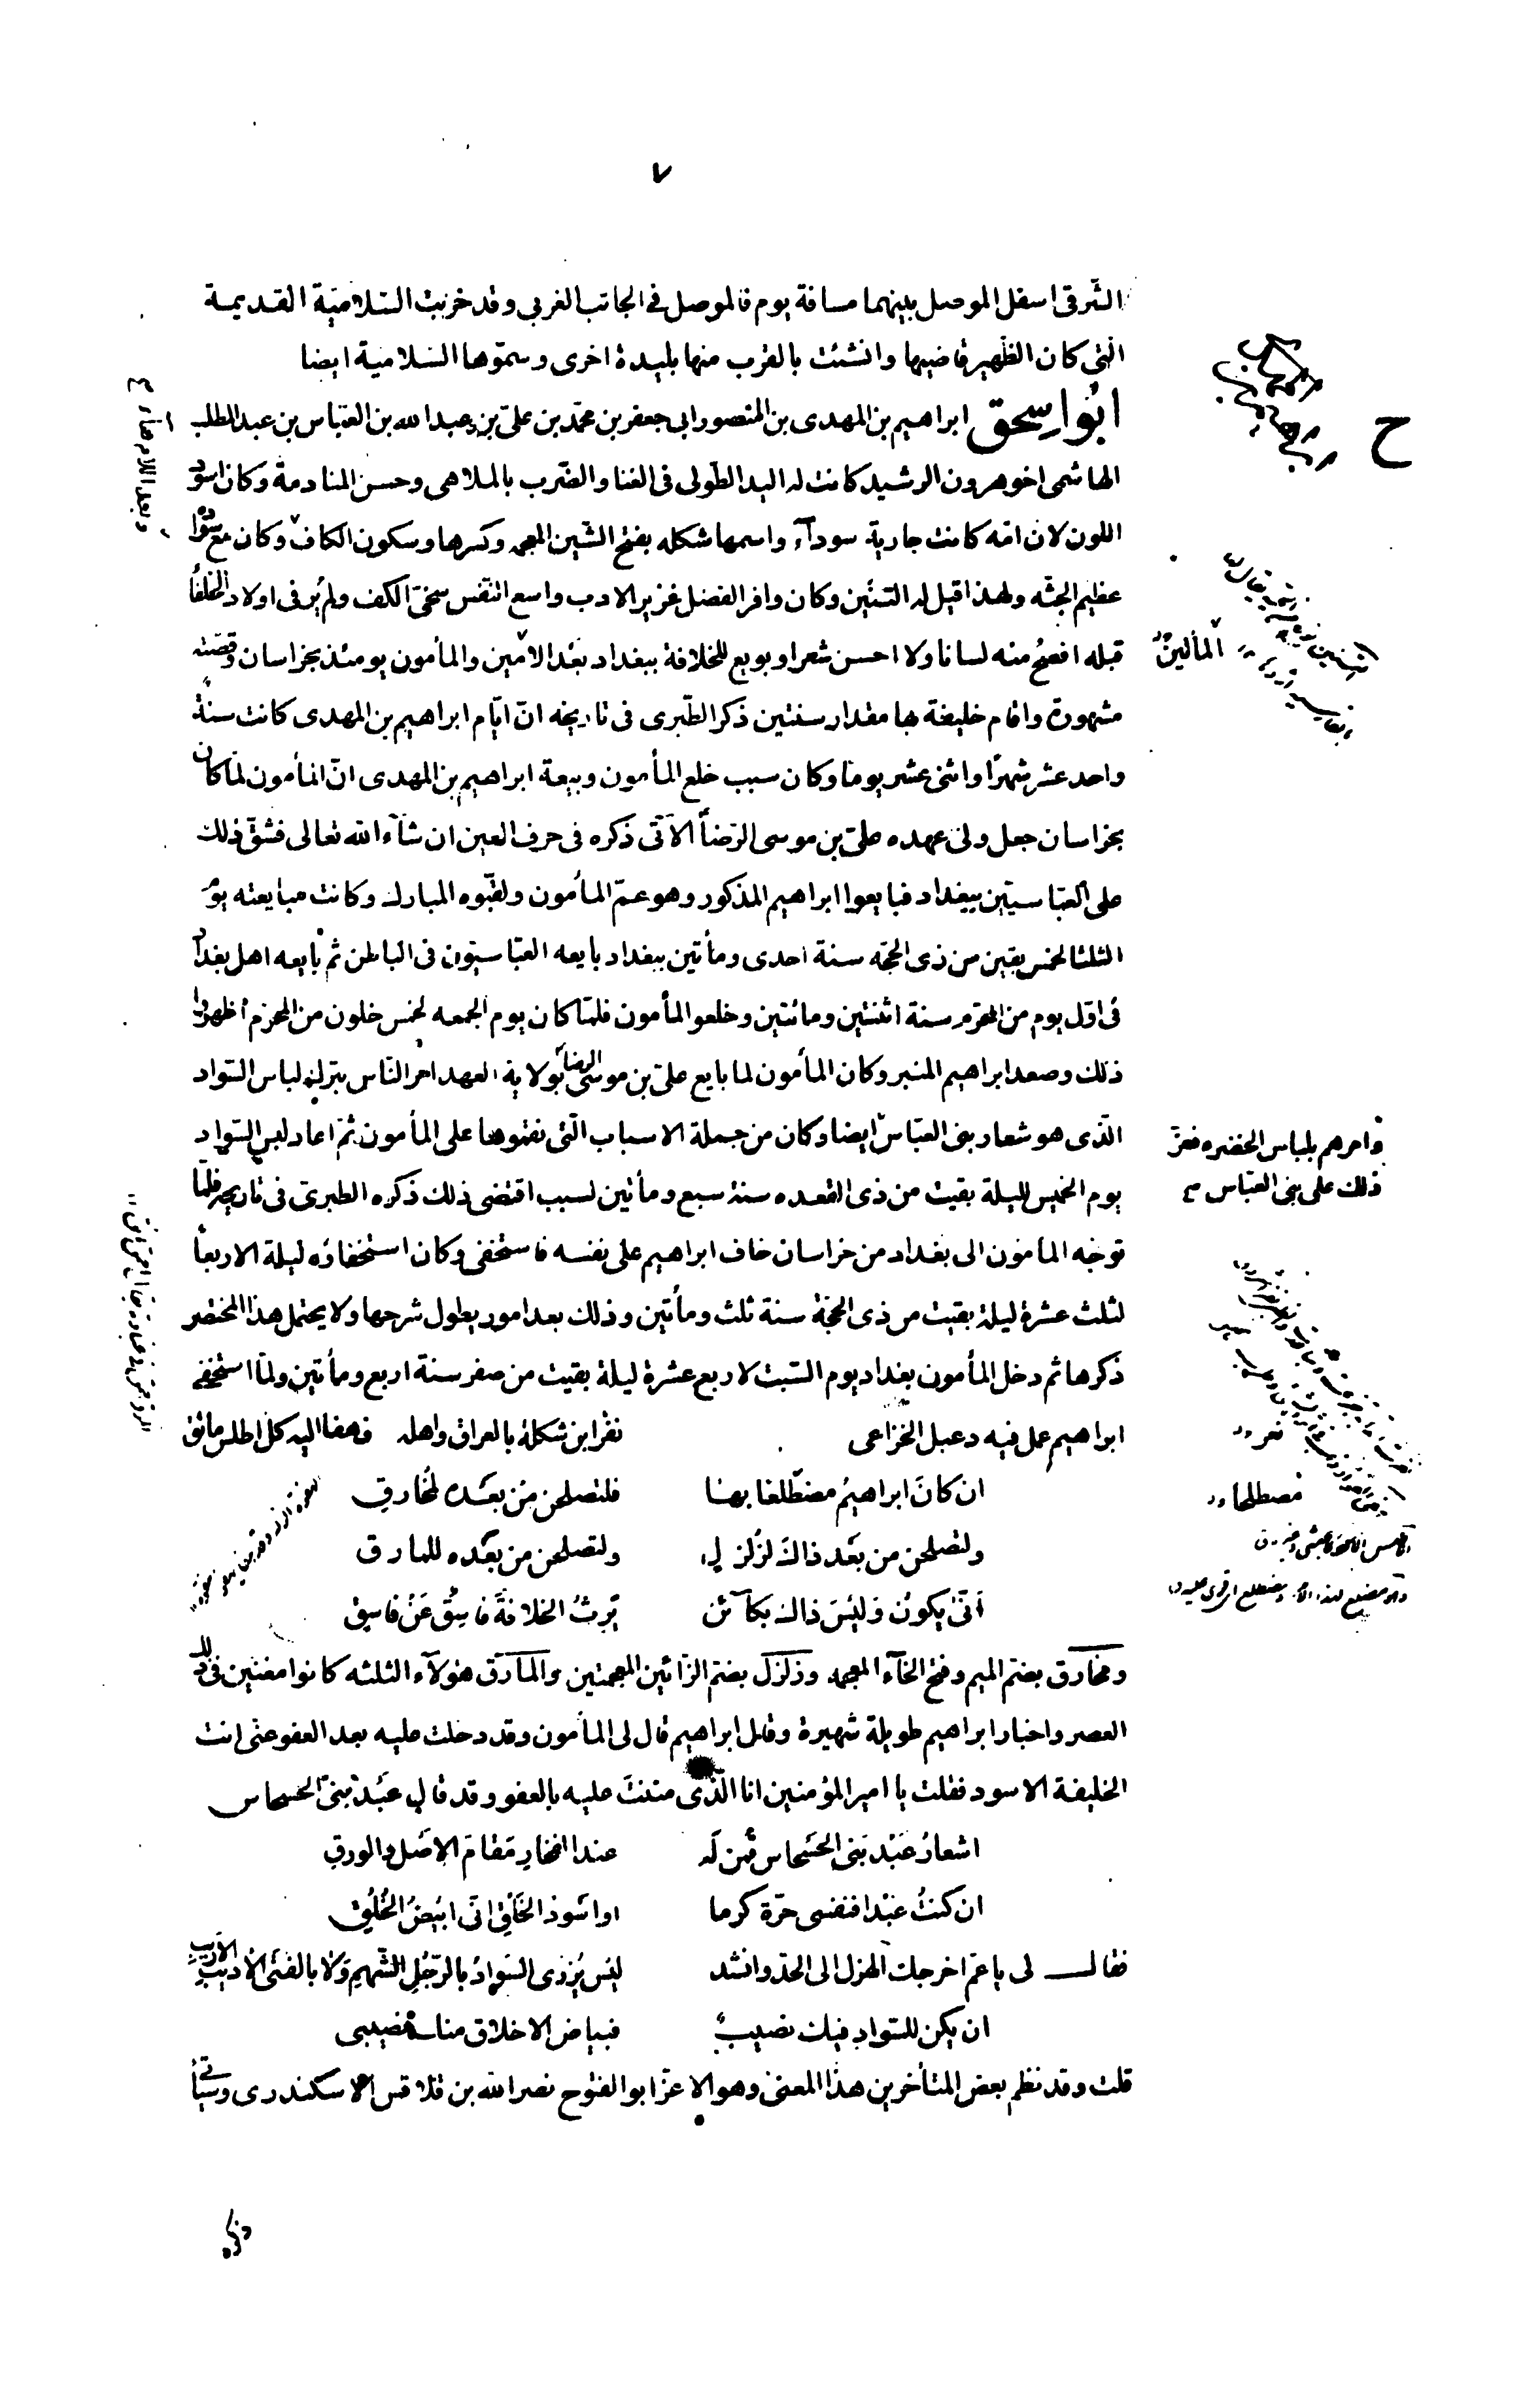 ٧
الشرقى اسفل الموصل بينهما مسافة يوم فالموصل فى الجانب الغربي وقد خربت السّلاميّة القديمة
الّتى كان الظّهير قاضيها وانشئت بالقرب منها بليدة اخرى وسمّوها السّلامية ايضا
ابُو اسِحق ابراهيم بن المهدى بن المنصور ابى جعفر بن محمّد بن علىّ بن عبد الله بن العبّاس بن عبد المطلب
الهاشمى اخو هرون الرشيد كانت له اليد الطّولى فى الغنا والضّرب بالملاهى وحسن المنادمة وكان اسود
اللون لان امّه كانت جارية سودآء واسمها شكله بفتح الشّين المعجمه وكسرها وسكون الكاف وكان مع سواده
عظيم الجثّه ولهذا قيل له التنّين وكان وافر الفضل غزير الادب واسع النّفس سخىّ الكف ولم يُر فى اولاد الخلفاُ
قبله افصحُ منه لسانا ولا احسن شعرا وبويع للخلافة ببغداد بعْد الامين والمأمون يومئذ بخراسان وقصّته
مشهورة واقام خليفة بها مقدار سنتين ذكر الطّبرى فى تاريخه انّ ايّام ابراهيم بن المهدى كانت سنةً
واحد عشر شهرًا واثنى عشر يومًا وكان سبب خلع المأمون وبيعة ابراهيم بن المهدى انّ المأمون لمّا كان
بخراسان جعل ولىّ عهده علىّ بن موسى الرّضاُ الآتى ذكره فى حرف العين ان شآء الله تعالى فشقّ ذلك
على العبّاسيّين ببغداد فبايعوا ابراهيم المذكور وهو عمّ المأمون ولقّبوه المبارك وكانت مبايعته يوم
الثلثا لخمس بقين من ذى الحجّه سنة احدى ومأتين ببغداد بايعه العبّاسيّون فى الباطن ثم بايعه اهل بغداد
فى اوّل يوم من المحرّم سنة اثنتين ومائتين وخلعو المأمون فلمّا كان يوم الجمعه لخمس خلون من المحرّم اظهروا
ذلك وصعد ابراهيم المنبر وكان المأمون لما بايع علىّ بن موسى الرضا بولاية العهد امر النّاس بترك لباس السّواد
الّذى هو شعار بنى العبّاس ايضا وكان من جملة الاسباب الّتى نقموها على المأمون ثمّ اعاد لبس السّواد
وامرهم بلباس الخضره فعزّ
ذلك على بنى العبّاس
يوم الخميس لليلة بقيت من ذى القعده سنة سبع ومأتين لسبب اقتضى ذلك ذكره الطبرىّ فى تاريخه فلمّا
توجّه المأمون الى بغداد من خراسان خاف ابراهيم على نفسه فاستخفى وكان استخفاؤه ليلة الاربعاُ
لثلث عشرة ليلة بقيت من ذى الحجّة سنة ثلث ومأتين وذلك بعد امور يطول شرحها ولا يحتمل هذا المختصر
ذكرها ثم دخل المأمون بغداد يوم السّبت لاربع عشرة ليلة بقيت من صفر سنة اربع ومأتين ولمّا استخفى
ابراهيم عمل فيه دعبل الخزاعى نفر ابن شكلة بالعراق واهله فهفا اليه كلّ اطلس مائق
ان كانَ ابراهيمُ مضطّلعًا بها فلتصلحن مِن بعَده لمُخارقِ
ولتصلحن من بعَد ذاكَ لزُلزلٍ ولتصلحن من بعَده للمارق
أنّىٰ يكونُ وَليسَ ذاك بكآئن يَرثُ الخلافةَ فاسِقٌ عَنْ فاسِق
ومخارق بضمّ الميم وفتح الخآء المعجمه وزلزل بضمّ الزائين المعجمتين والمارق هؤلآء الثلثه كانوا مغنين فى ذلك
العصر واخبار ابراهيم طويلة شهيرة وقال ابراهيم قال لى المأمون وقد دخلت عليه بعد العفو عنّى انت
الخليفة الاسود فقلت يا امير المؤمنين انا الّذى مننتَ عليه بالعفو وقد قال عَبْد بنى الحسحاس
اشعارُ عَبْد بَنى الحسْحاس قُمن لَه عند الفخارِ مَقامَ الاصَل والورِقِ
ان كنتُ عبْدا فنفسى حرّة كرما او اسَود الخَلْقِ انّى ابيَضُ الخُلُقِ
فقال لى يا عمّ اخرجك الهزل الى الجدّ وانشد ليَس يُزرى السّوادُ بالرّجُلِ الشّهمِ وَلا بالفتَى الأديبِ الأريبِ
ان يكن للسّوادِ فيك نصيبٌ فبياض الاخلاق منك نصيبى
قلت وقد نظم بعض المتأخرين هذا المعنى وهو الاعزّ ابو الفتوح نصر الله بن قلاقس الاسكندرى وسيأتى
ذكره